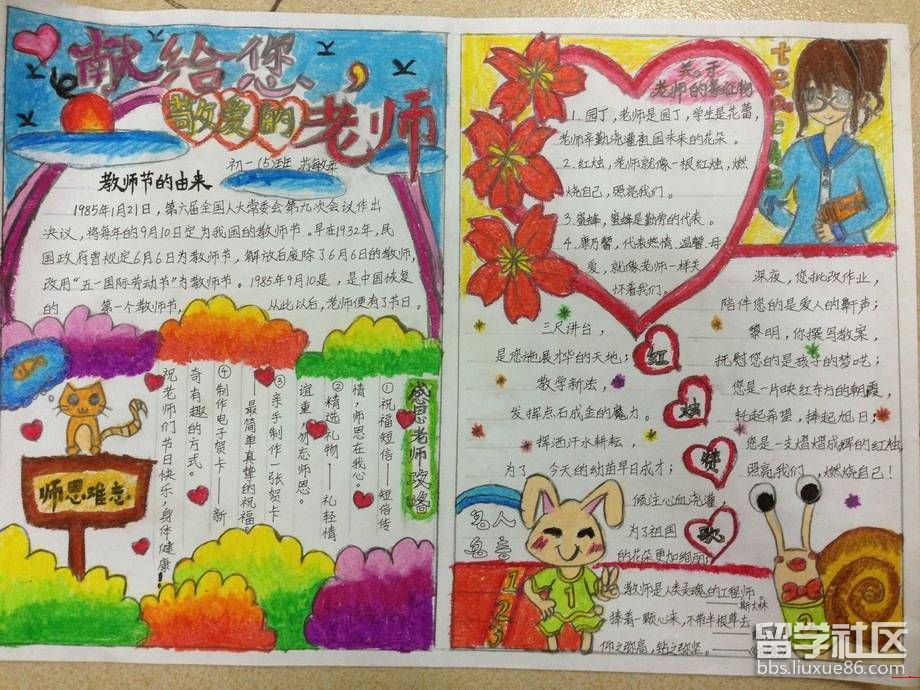 献给您、
敬爱的老师
初一(5)班
教师节的由来
1985年1月21日，第六届全国人大常委会第九次会议作出
决议，将每年的9月10日定为我国的教师节。早在1932年，民
国政府曾规定6月6日为教师节，解放后废除了6月6日的教师节，
改用“五一国际劳动节”为教师节。1985年9月10是，是中国恢复
的 第一个教师节， 从此以后，老师便有了节日。
感恩老师攻略
①祝福短信——短信传
情，师恩在我心。
②精选礼物——礼轻情
谊重，勿忘师恩。
③亲手制作一张贺卡
——最简单真挚的祝福
④制作电子贺卡——新
奇有趣的方式。
祝老师们节日快乐、身体健康！
师恩难忘
关于
老师的象征物
1.园丁，老师是园丁，学生是花蕾，
老师辛勤浇灌祖国未来的花朵。
2.红烛，老师就像一根红烛，燃
烧自己，照亮我们。
3.蜜蜂，蜜蜂是勤劳的代表。
4.康乃馨，代表热情、温馨、母
爱，就像老师一样关
怀着我们。
红烛赞歌
三尺讲台，
是您施展才华的天地；
教学新法，
发挥点石成金的魔力。
挥洒汗水耕耘，
为了 今天的幼苗早日成才；
倾注心血浇灌，
为了祖国
的花朵更加绚丽；
深夜，您批改作业，
陪伴您的是爱人的鼾声；
黎明，你撰写教案，
抚慰您的是孩子的梦呓；
您是一片映红东方的朝霞，
托起希望，捧起旭日；
您是一支熠熠成辉的红烛，
照亮我们，燃烧自己！
名人
名言
1
2
3
1
教师是人类灵魂的工程师。
——斯大林
捧着一颗心来，不带半根草去
仰之弥高，钻之弥坚。
留学社区
bbs.liuxue86.com